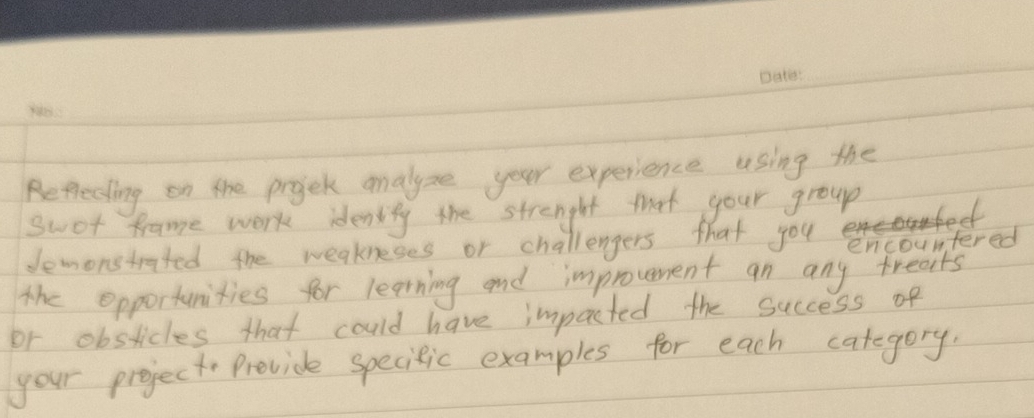 Date:
No.:
Reflecting on the projek analyze your experience using the
Swot frame work identify the strenght that your group
demonstrated the weakneses or challengers that you encounted
encountered
the opportunities for learning and improvement an any treats
or obsticles that could have impacted the success of
your project. Provide specific examples for each category.